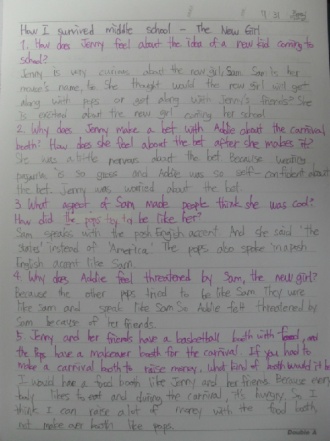 How I survived middle school - The New Girl
1. How does Jenny feel about the idea of a new kid coming to
school?
Jenny is very curious about the new girl, Sam. Sam is her
name's name, to She thought would the new girl will get
along with pops or get along with Jenny's friends? She
is excited about the new girl coming her school.
2. Why does Jenny make a bet with Addie about the carnival
booth? How does she feel about the bet after she makes it?
She was a little nervous about the bet. Because wearing
is so gross and Addie was so self-confident about
the bet. Jenny was worried about the bet.
3. What aspect of Sam, made people think she was cool?
How did the pops try to be like her?
Sam speaks with the posh English accent. And she said 'the
states' instead of 'America'. The pops also spoke in a posh
English accent like Sam.
4. Why does Addie feel threatened by Sam, the new girl?
Because the other pops tried to be like Sam. They were
like Sam and speak like Sam. So Addie felt threatened by
Sam because of her friends.
5. Jenny and her friends have a basketball booth with food, and
the Pops have a makeover booth for the carnival. If you had to
make a carnival booth to raise money, what kind of booth would it be
I would have a food booth like Jenny and her friends. Because many
likes to eat and during the carnival, it's hungry. So I
think I can raise a lot of money with the food booth,
not make over booth like pops.
Double A